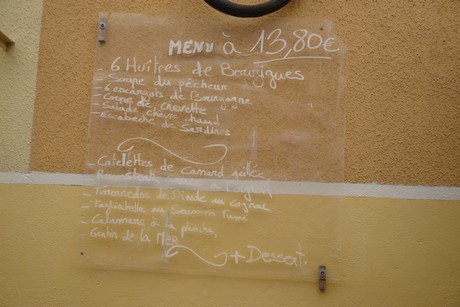 MENU à 13,80€
- 6 Huîtres de Bouzigues
- Soupe du pêcheur
- 6 escargots de Bourgogne
- Coque de crevette
- Salade chèvre chaud
- Escabèche de Sardines
- Aiguillettes de canard grillée
- Tournedos de Dinde au cognac
- Tagliatelle au Saumon Fumé
- Calamars à la plancha
- Gratin de la MER
+ Dessert.